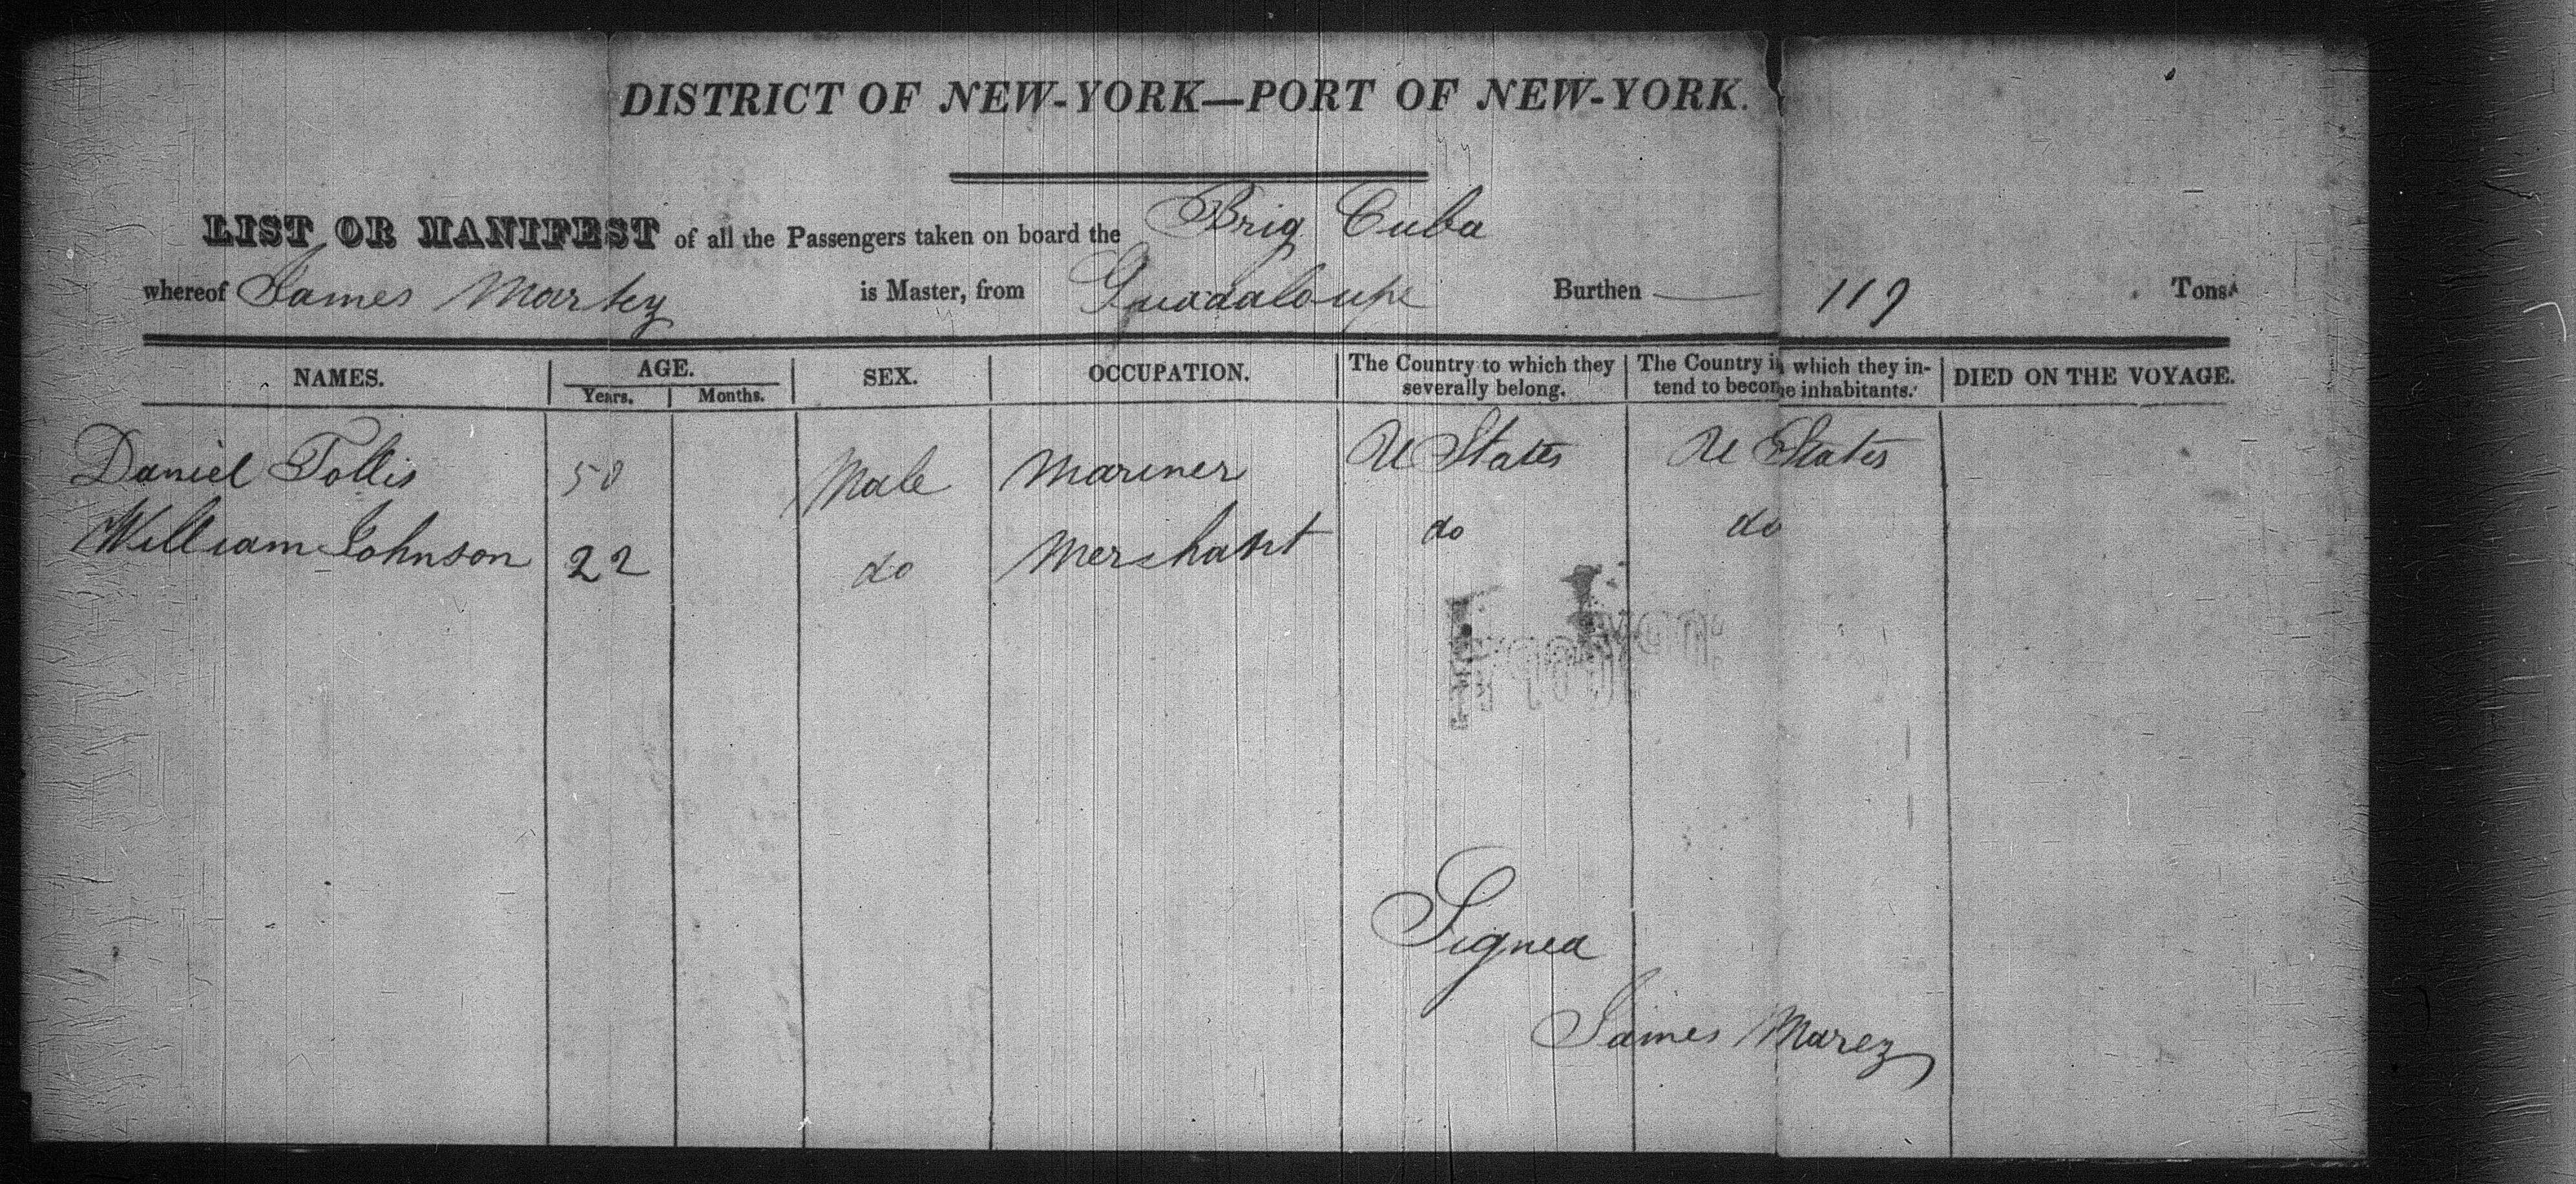 DISTRICT OF NEW-YORK—PORT OF NEW-YORK.
LIST OR MANIFEST of all the Passengers taken on board the Brig Cuba
whereof James is Master, from Guadaloupe Burthen — 119 Tons
NAMES. AGE. SEX. OCCUPATION. The Country to which they severally belong. The Country in which they intend to become inhabitants. DIED ON THE VOYAGE.
Years. Months.
Daniel Tollis 50 Male Mariner U States U States
William Johnson 22 do Merchant do do
Signed
James Marez